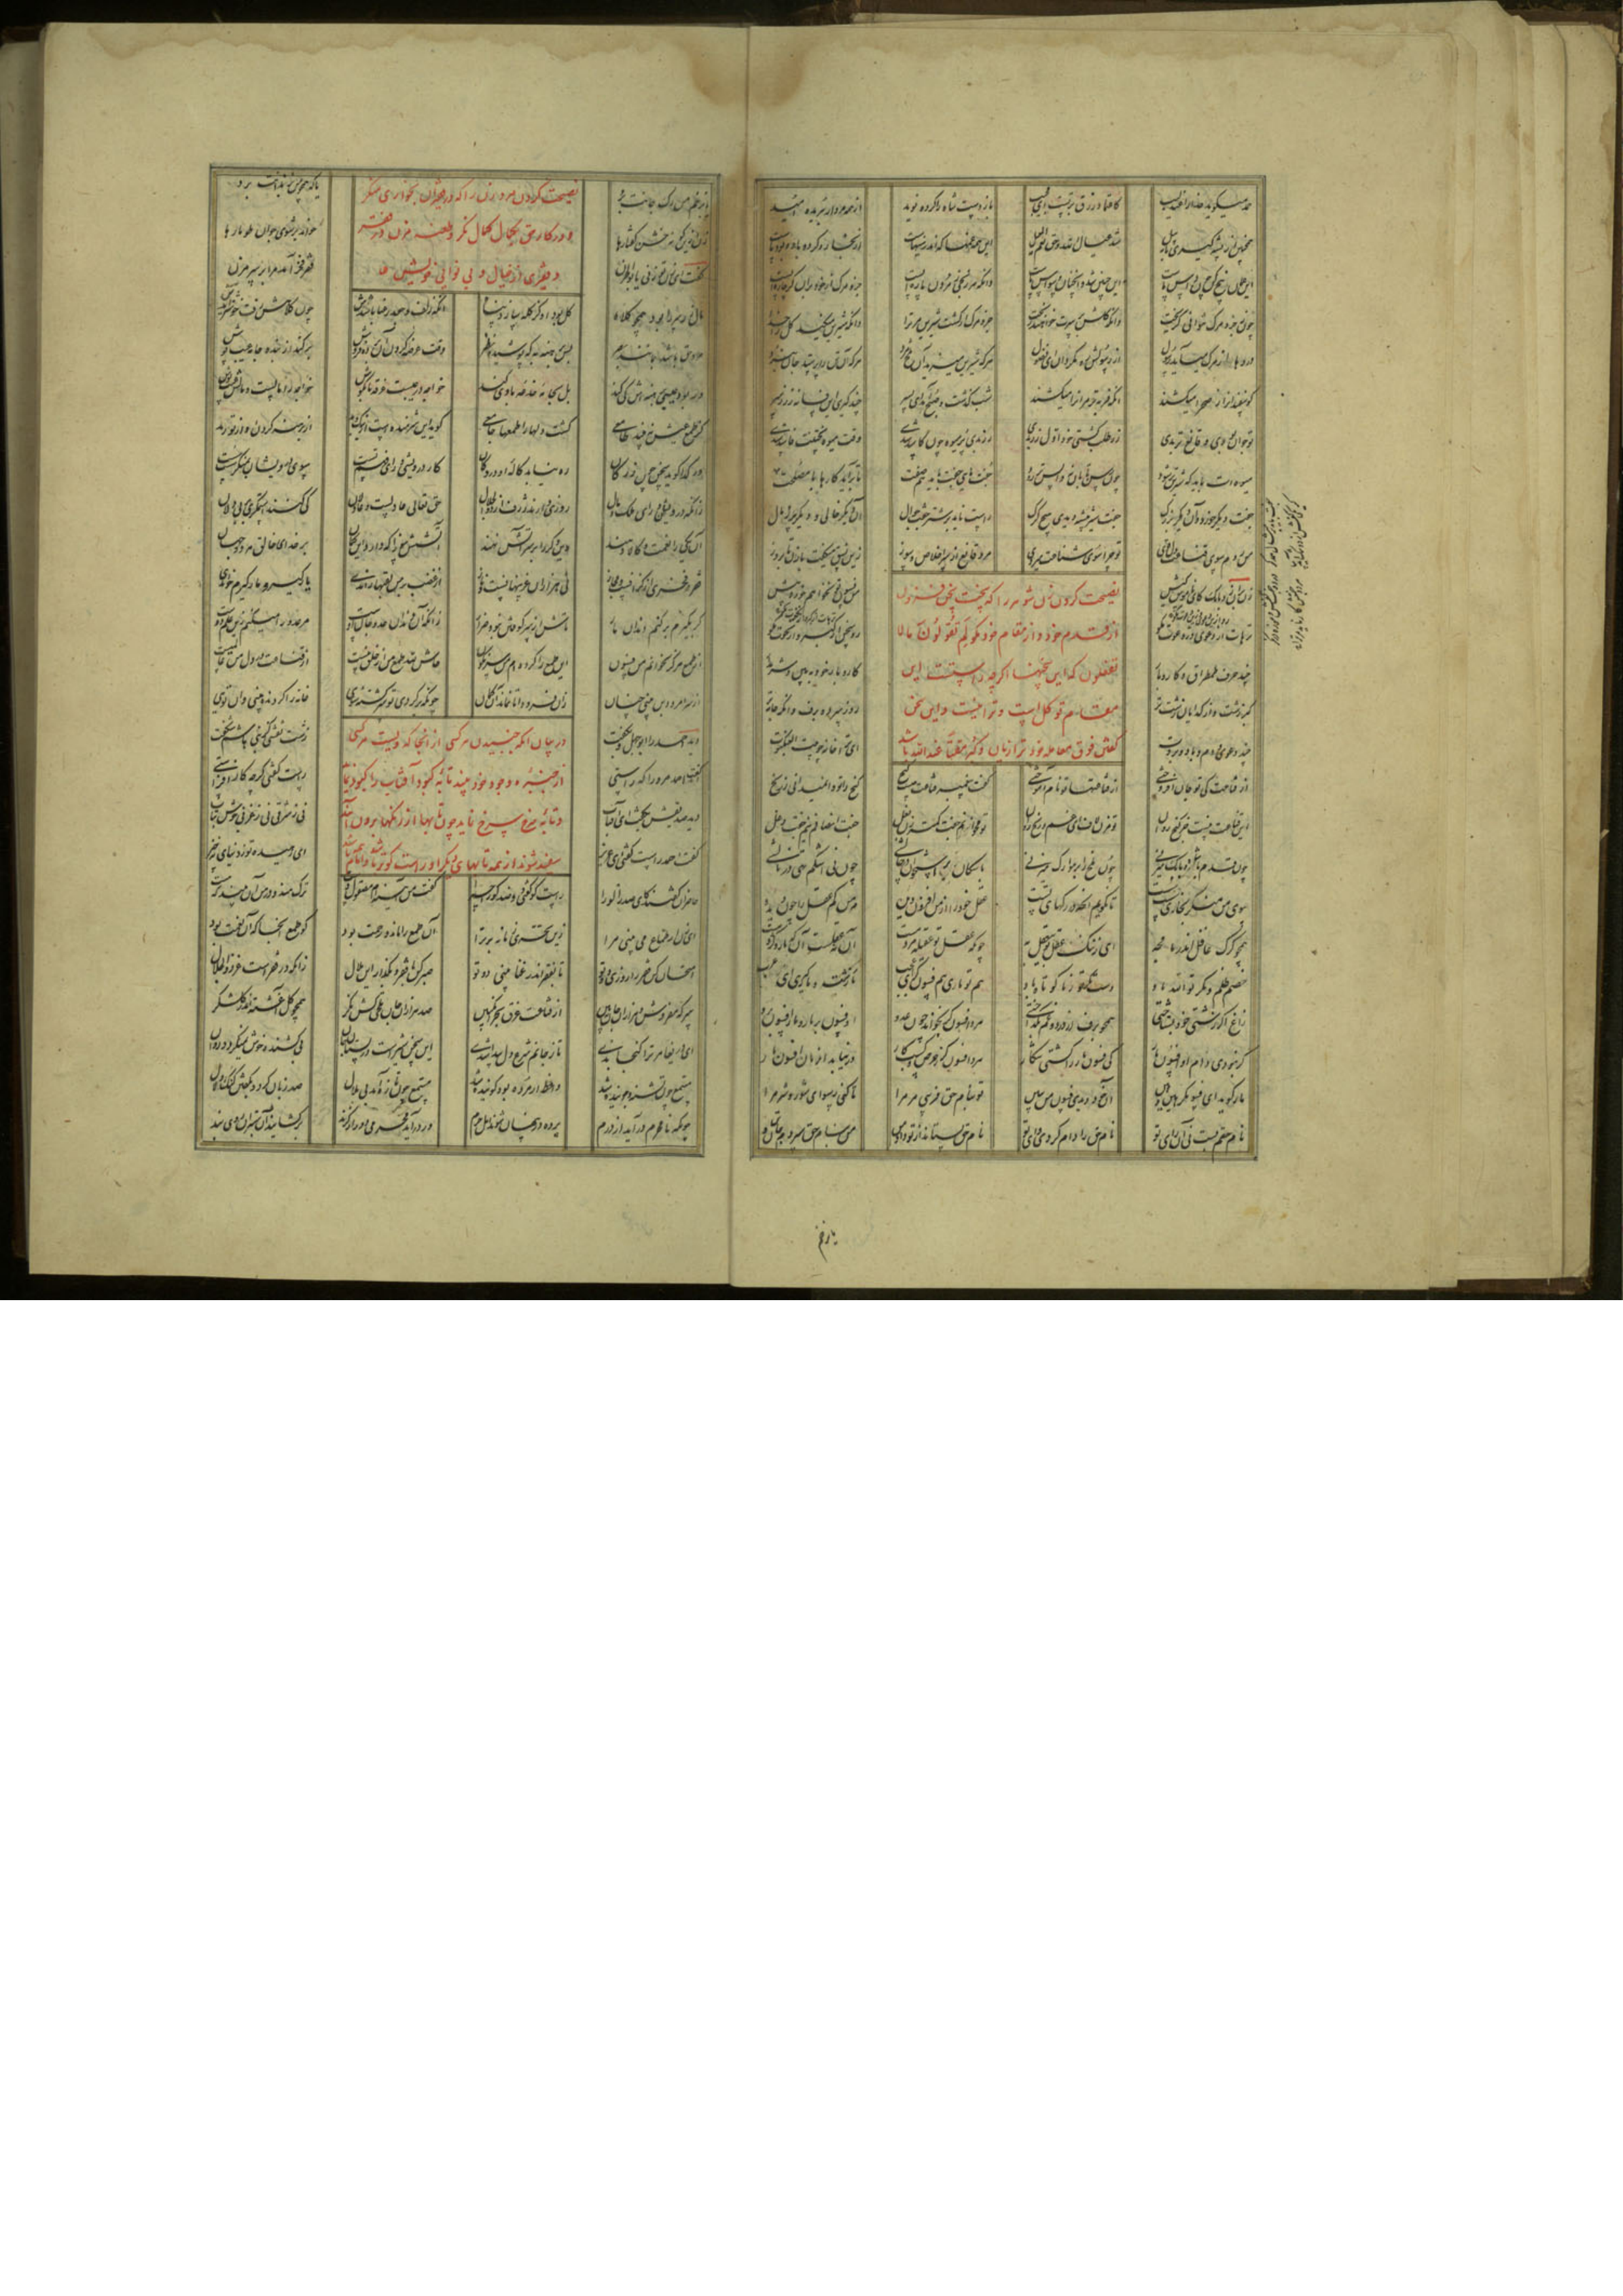 حمد میگوید خدا را عندلیب کاعتماد رزق بر تست ای مجیب باز دست شاه را کرده نوید از همه مردار ببریده امید
همچنین از پشه گیری تا به پیل شد عیال الله و حق نعم المعیل این همه غمها که اندر سینهاست از بخار و گرد باد و بود ماست
این غمان بیخ کن چون داس ماست این چنین شد و آنچنان وسواس ماست دانکه هر رنجی ز مردن پاره ایست جزو مرگ از خود بران گر چاره ایست
چون ز جزو مرگ نتوانی گریخت دانکه کلش بر سرت خواهند ریخت جزو مرگ ار گشت شیرین مر ترا دانکه شیرین میکند کل را خدا
دردها از مرگ میآید رسول از رسولش رو مگردان ای فضول هر که شیرین میزید او تلخ مرد هر که او تن را پرستد جان نبرد
گوسفندان را ز صحرا میکشند آنکه فربه تر مر آنرا میکشند شب گذشت و صبح آمد ای پسر چند گیری این فسانه زر ز سر
تو جوان بودی و قانع تر بدی زر طلب گشتی خود اول زر بدی رز بدی پر میوه چون کاسد شدی وقت میوه پختنت فاسد شدی
میوه ات باید که شیرین تر شود چون رسن تابان نه واپس تر رود جفت مایی جفت باید هم صفت تا برآید کارها با مصلحت
جفت شیر بیشه دیدی هیچ گرگ راست ناید بر شتر جفت جوال آن یکی خالی و دیگر مال مال
من روم سوی قناعت دل قوی تو چرا سوی شناعت میروی مرد قانع از سر اخلاص و سوز زین نسق میگفت با زن تا بروز
زن برو زد بانگ کای ناموس کیش من فسون تو نخواهم خورد بیش
نصیحت کردن زن شوهر را که سخن فزون
از قدم خود و از مقام خود مگو لم تقولون ما لا
تفعلون که این سخنها اگرچه راست است این
مقام توکل است و ترا نیست و این سخن
گفتن فوق معامله خود ترا زیان و کبر مقتا عند الله باشد
ترهات از دعوی و دعوت مگو رو سخن از کبر و از نخوت مگو
چند حرف طمطراق و کار و بار کار و بار خود ببین و شرم دار
کبر زشت و از گدایان زشت تر روز سرد و برف وانگه جامه تر
چند دعوی و دم و باد و بروت ای ترا خانه چو بیت العنکبوت
از قناعت کی تو جان افروختی از قناعتها تو نام آموختی گفت پیغمبر قناعت چیست گنج گنج را تو وا نمیدانی ز رنج
این قناعت نیست جز گنج روان تو مزن لاف ای غم و رنج روان تو مخوانم جفت کمتر زن بغل جفت انصافم نیم جفت دغل
چون قدم با میر و با بک میزنی چون ملخ را در هوا رگ میزنی با سگان بر استخوان در چالشی چون نی اشکم تهی در نالشی
سوی من منگر بخواری سست سست تا نگویم آنچه در رگهای تست عقل خود را از من افزون دیده مر من کم عقل را چون دیده
همچو گرگ غافل اندر ما مجه ای ز ننگ عقل تو بی عقل به چونکه عقل تو عقیله مردمست آن نه عقلست آن که مار و کژدمست
خصم ظلم و مکر تو الله باد دست مکر تو ز ما کوتاه باد هم تو ماری هم فسونگر ای عجب مارگیر و ماری ای ننگ عرب
زاغ اگر زشتی خود بشناختی همچو برف از درد و غم بگداختی مرد افسونگر بخواند چون عدو او فسون بر مار و مار افسون برو
گر نبودی دام او افسون مار کی فسون مار را گشتی شکار مرد افسونگر ز حرص کسب و کار در نیابد آن زمان افسون مار
مار گوید ای فسونگر هین و هین آن خود دیدی فسون من ببین تو بنام حق فریبی مر مرا تا کنی رسوای شور و شر مرا
نام حقم بست نی آن رای تو نام حق را دام کردی وای تو نام حق بستاند از تو داد من من بنام حق سپردم جان و تن
یا بزخم
یا بزخم من رگ جانت برد یا که همچون من بزندانت برد
زن ازین گونه خشن گفتارها خواند بر شوی جوان طومارها
نصیحت کردن مرد زن را که در فقیران بخواری منگر
و در کار حق بگمان کمال نگر و طعنه مزن در فقر
و فقیری از خیال و بی نوایی خویشتن
گفت ای زن تو زنی یا بو الحزن فقر فخر آمد مرا بر سر مزن
مال و زر سر را بود همچون کلاه کل بود او کز کله سازد پناه آنکه زلف و جعد رعنا باشدش چون کلاهش رفت خوشتر آیدش
مرد حق باشد بمانند بصر پس برهنه به که پوشیده نظر وقت عرضه کردن آن برده فروش برکند از بنده جامه عیب پوش
ور بود عیبی برهنه اش کی کند بل بجامه خدعه با وی کند گوید این شرمنده است از نیک و بد از برهنه کردن او از تو رمد
خواجه در عیبست غرقه تا بگوش خواجه را مالست و مالش عیب پوش
کز طمع عیبش نبیند طامعی گشت دلها را طمعها جامعی
ور گدا گوید سخن چون زر کان ره نیابد کاله او در دکان کار درویشی ورای فهم تست سوی درویشی بمنگر سست سست
زانکه درویشان ورای ملک و مال روزی دارند ژرف از ذوالجلال حق تعالی عادلست و عادلان کی کنند استمگری بر بیدلان
آن یکی را نعمت و کالا دهند وین دگر را بر سر آتش نهند آتشش سوزد که دارد این گمان بر خدای خالق هر دو جهان
فقر فخری از گزافست و مجاز نی هزاران عز پنهانست و ناز از غضب بر من لقبها راندی یارگیر و مارگیرم خواندی
گر بگیرم بر کنم دندان مار تاش از سر کوفتن نبود ضرار زانکه آن دندان عدو جان اوست من عدو را میکنم زین علم دوست
از طمع هرگز نخوانم من فسون این طمع را کرده ام من سرنگون حاش لله طمع من از خلق نیست از قناعت در دل من عالمیست
از سر امرود بن بینی چنان زان فرود آ تا نماند آن گمان چونکه بر گردی تو سرگشته شوی خانه را گردنده بینی وان توی
در بیان آنکه جنبیدن هر کسی از آنجا که ویست هر کسی
از چنبره وجود خود بیند تابه کبود آفتاب را کبود نماید
و تابه سرخ سرخ نماید چون تابها از رنگها بیرون آید
سفید شوند از همه تابهای دیگر او راست گوتر باشد و امام باشد
دید احمد را ابوجهل و بگفت زشت نقشی کز بنی هاشم شگفت
گفت احمد مر ورا که راستی راست گفتی گرچه کار افزاستی
دید صدیقش بگفت ای آفتاب نی ز شرقی نی ز غربی خوش بتاب
گفت احمد راست گفتی ای عزیز ای رهیده تو ز دنیای نه چیز
حاضران گفتند کای صدر الوری راست گو گفتی دو ضد گو را چرا گفت من آیینه ام مصقول دست ترک و هندو در من آن بیند که هست
ای زن ار طماع می بینی مرا زین تحری زنانه برتر آ آن طمع را ماند و رحمت بود کو طمع آنجا که آن نعمت بود
امتحان کن فقر را روزی دو تو تا بفقر اندر غنا بینی دو تو صبر کن با فقر و بگذار این ملال زانکه در فقرست عز ذوالجلال
سرکه مفروش و هزاران جان ببین از قناعت غرق بحر انگبین صد هزاران جان تلخی کش نگر همچو گل آغشته اندر گلشکر
ای دریغا مر ترا گنجا بدی تا ز جانم شرح دل پیدا شدی این سخن شیرست در پستان جان بی کشنده خوش نمیگردد روان
مستمع چون تشنه و جوینده شد واعظ ار مرده بود گوینده شد مستمع چون تازه آمد بی ملال صد زبان گردد بگفتن گنگ و لال
چونکه نامحرم در آید از درم پرده در پنهان شوند اهل حرم ور در آید محرمی دور از گزند برگشایند آن ستیران روی بند